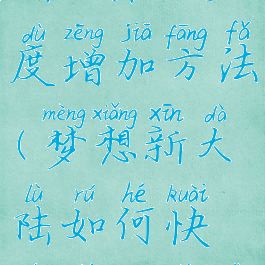 dù zēng jiā fāng fǎ
度增加方法
mèng xiǎng xīn dà
(梦想新大
lù rú hé kuài
陆如何快